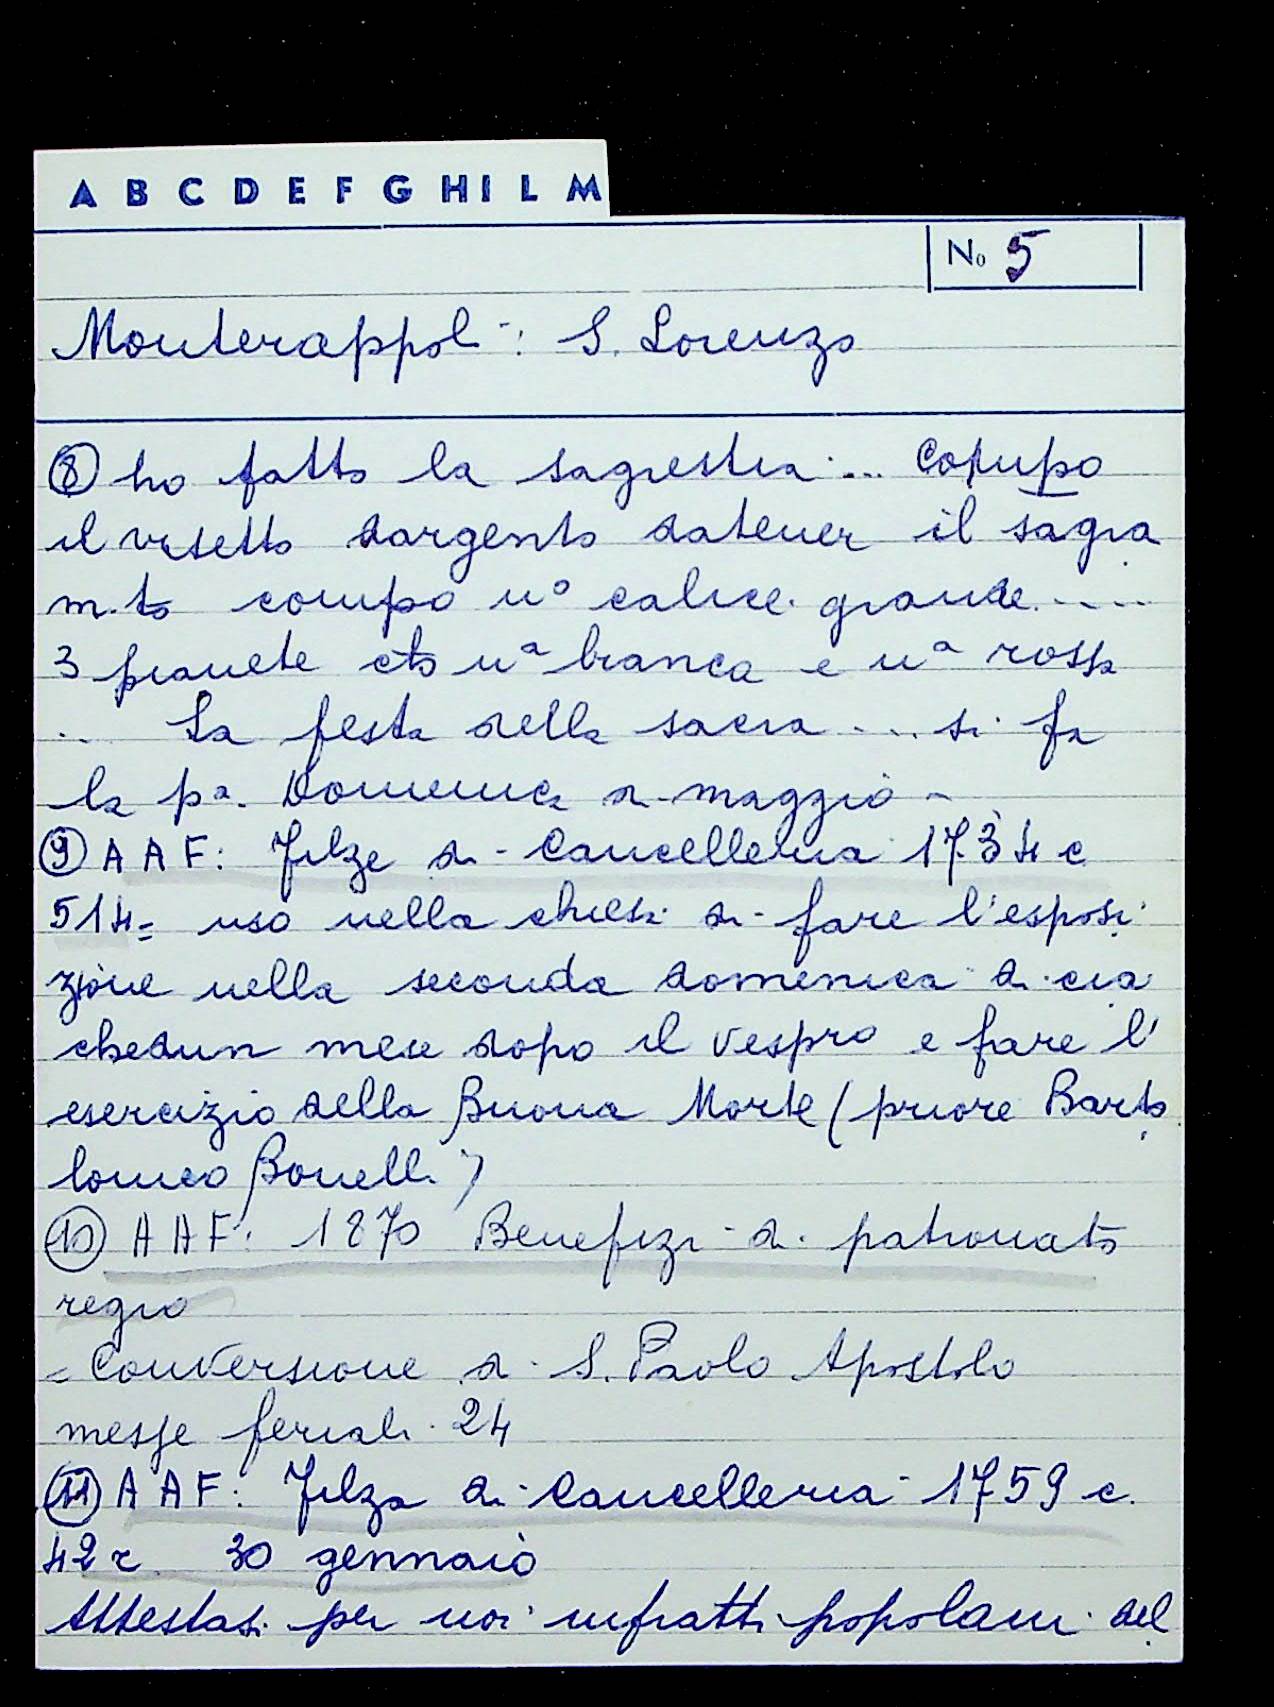 A B C D E F G H I L M
No 5
Monterappoli: S. Lorenzo
⑧ ho fatto la sagrestia ... Comp⁰
il vasetto dargento datener il sagra
m.to compo n° calice grande ....
3 pianete cto nª bianca e nª rossa
.. La festa della sacra .... si fa
la pª. Domenica di maggio -
⑨ A A F: Filze di Cancelleria 1734 c
514= uso nella chiesa di fare l'esposi
zione nella seconda domenica di cia
chedun mese dopo il vespro e fare l'
esercizio della Buona Morte (priore Barto
lomeo Bonelli)
⑩ A A F: 1870 Benefizi di patronato
regio
= Conversione di S. Paolo Apostolo
messe feriali 24
⑪ A A F: Filza di Cancelleria 1759 c.
42 r. 30 gennaio
Attestasi per noi infratti popolani del